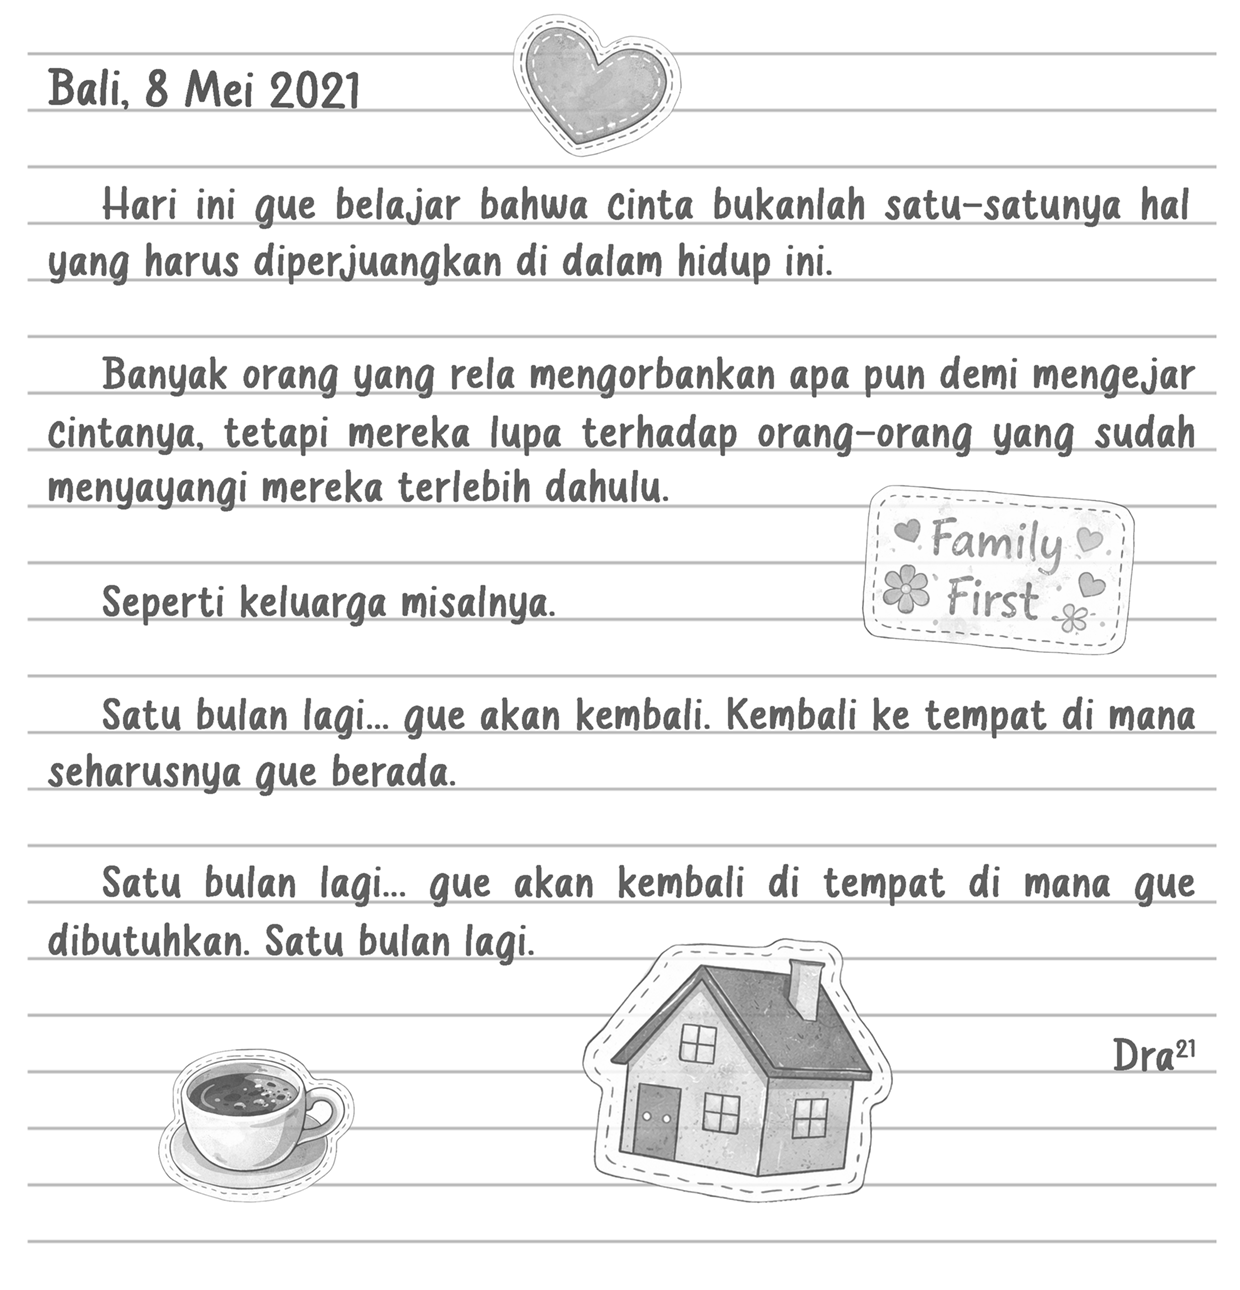 Bali, 8 Mei 2021
Hari ini gue belajar bahwa cinta bukanlah satu-satunya hal
yang harus diperjuangkan di dalam hidup ini.
Banyak orang yang rela mengorbankan apa pun demi mengejar
cintanya, tetapi mereka lupa terhadap orang-orang yang sudah
menyayangi mereka terlebih dahulu.
Family
First
Seperti keluarga misalnya.
Satu bulan lagi... gue akan kembali. Kembali ke tempat di mana
seharusnya gue berada.
Satu bulan lagi... gue akan kembali di tempat di mana gue
dibutuhkan. Satu bulan lagi.
Dra²¹